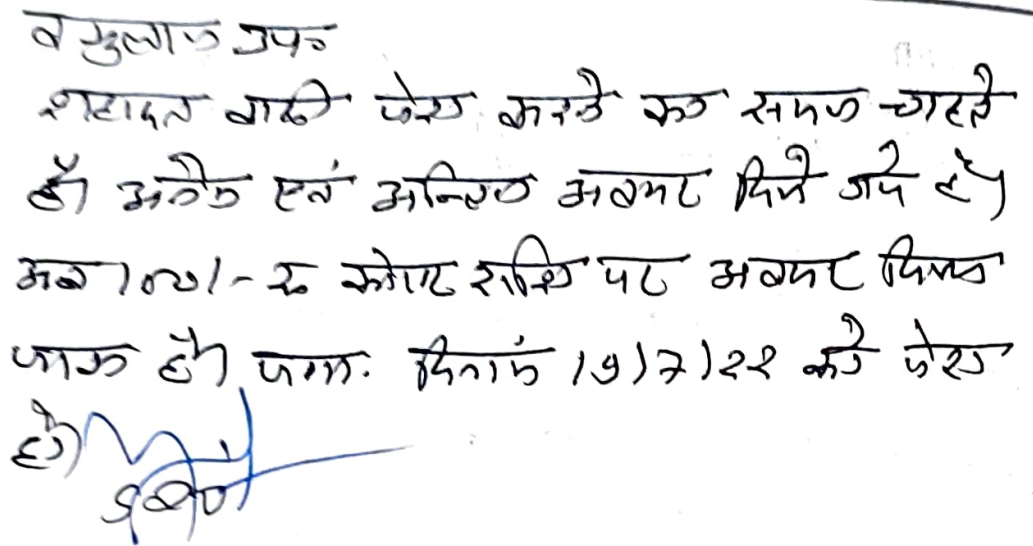 व गुलाम उप०
शहादत वादी पेश करने का समय चाहते
है। अनेक एवं अन्तिम अवसर दिये गये है।
अब 100/- रू कोस्ट राशि पर अवसर दिया
जाता है। पत्रा. दिनांक 19/7/22 को पेश
हो।